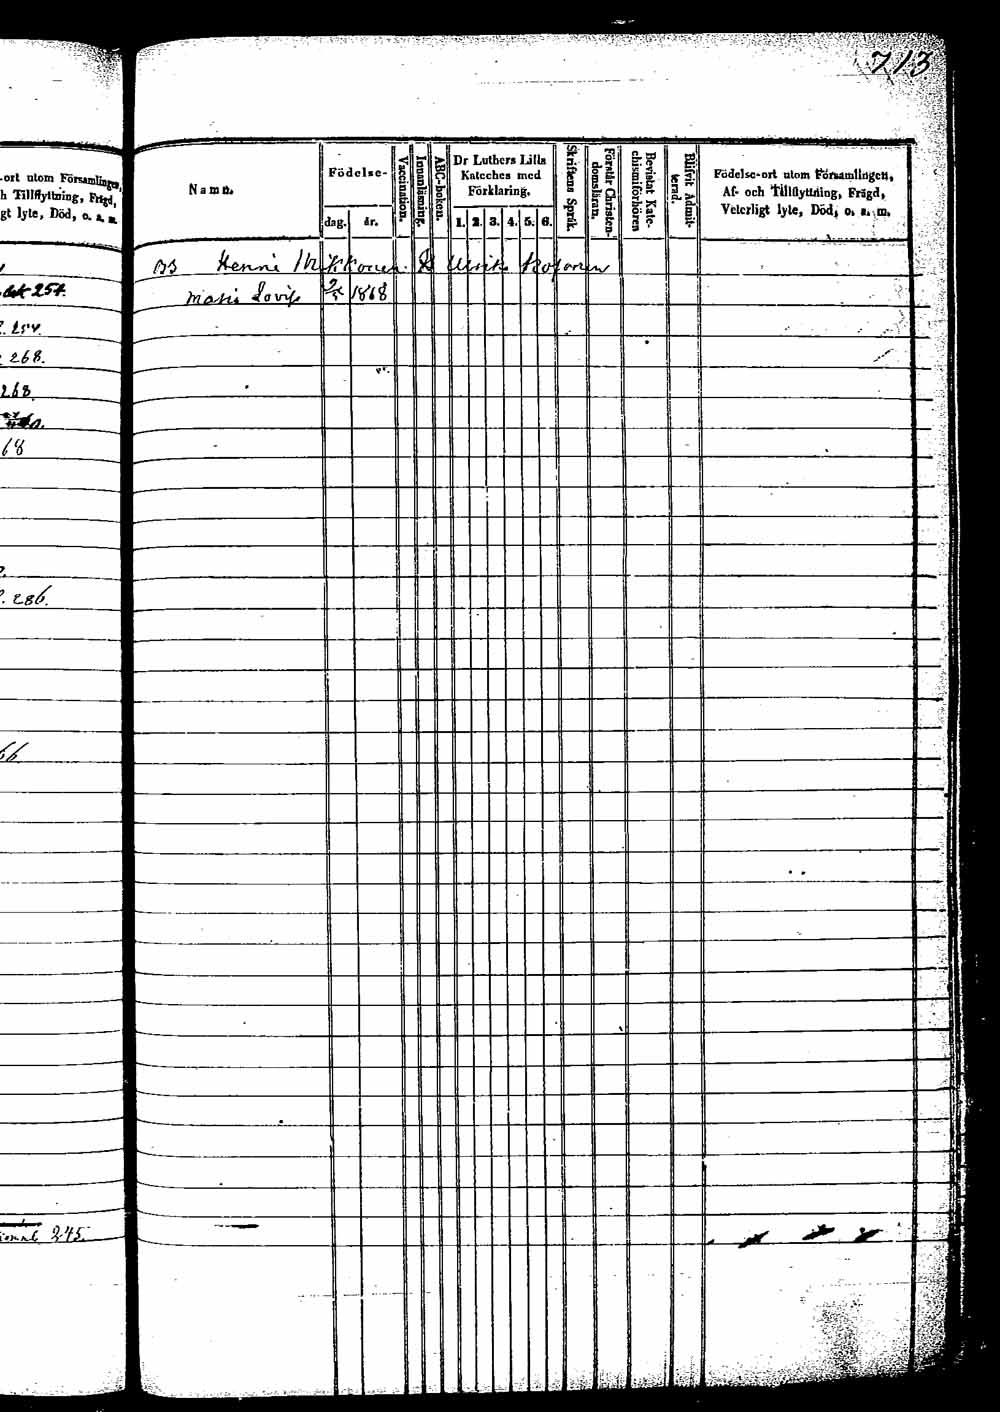 713
-ort utom Församlingen,
h Tillflyttning, Frägd,
gt lyte, Död, o. s. m.
254.
254.
268.
268.
68
286.
66
245.
Namn.
Födelse-
dag. år.
Vaccination.
Innanläsning.
ABC-boken.
Dr Luthers Lilla
Kateches med
Förklaring.
1. 2. 3. 4. 5. 6.
Skriftens Språk.
Förstår Christen-
domsläran.
Bevistat Kate-
chismiförhören
Blifvit Admit-
terad.
Födelse-ort utom Församlingen,
Af- och Tillflyttning, Frägd,
Veterligt lyte, Död, o. s. m.
Henric Mikkonen
Maria Lovis 1868